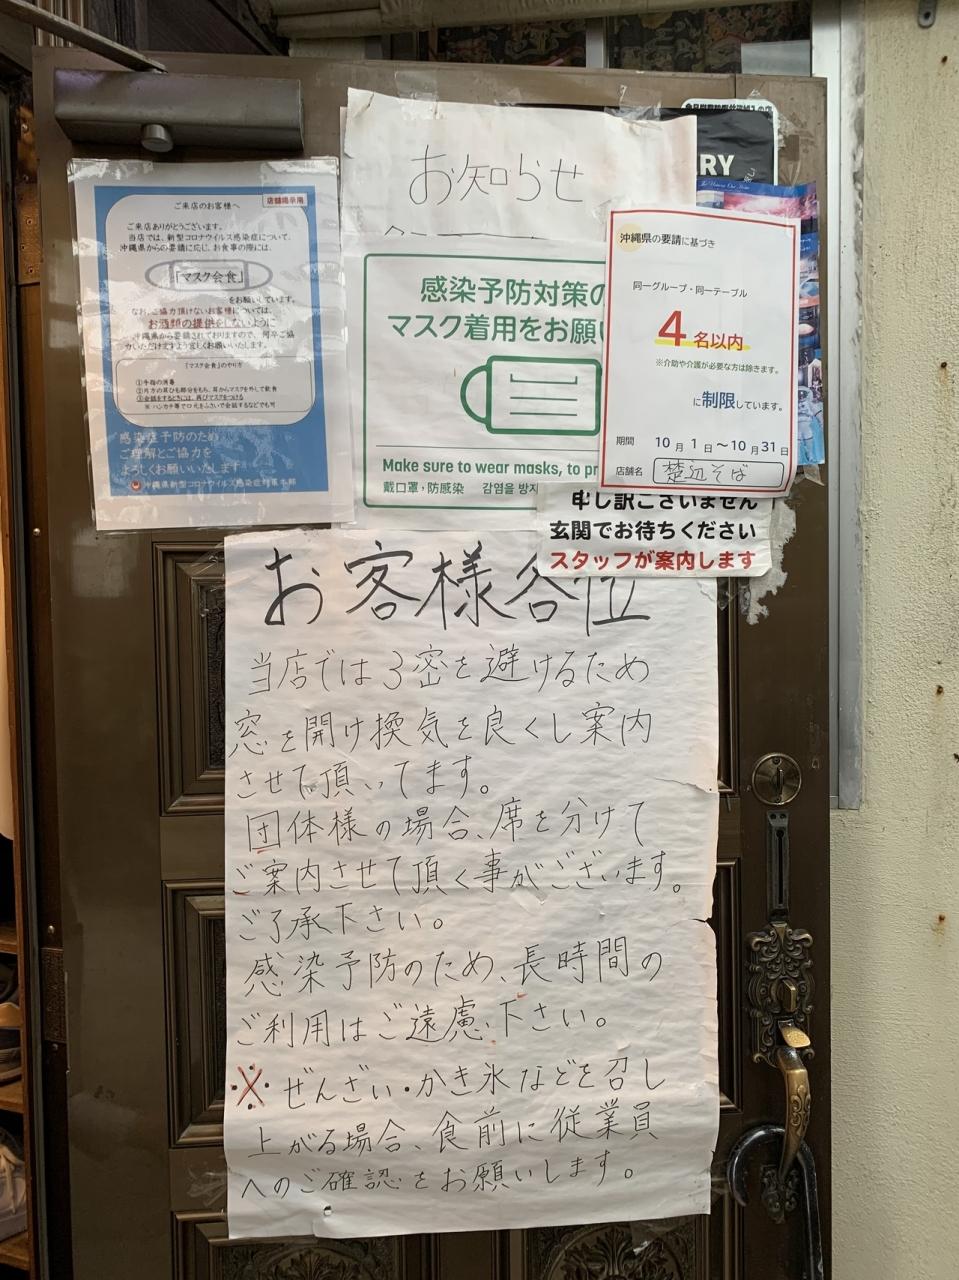 お知らせ
RY
ご来店のお客様へ
店舗掲示用
ご来店ありがとうございます。
当店では、新型コロナウイルス感染症について、
沖縄県からの要請に応じ、お食事の際には、
「マスク会食」
をお願いしています。
なお、ご協力頂けないお客様については、
お酒類の提供をしないように
沖縄県から要請されておりますので、何卒ご協
力いただけますよう宜しくお願いいたします。
「マスク会食」のやり方
①手指の消毒
②片方の耳ひも部分をもち、耳からマスクを外して飲食
③会話をするときには、再びマスクをつける
※ハンカチ等で口元をふさいで会話するなどでも可
感染症予防のため
ご理解とご協力を
よろしくお願いいたします
沖縄県新型コロナウイルス感染症対策本部
感染予防対策の
マスク着用をお願い
Make sure to wear masks, to pr
戴口罩，防感染 감염을 방지
沖縄県の要請に基づき
同一グループ・同一テーブル
4名以内
※介助や介護が必要な方は除きます。
に制限しています。
期間 10月1日〜10月31日
店舗名 楚辺そば
申し訳ございません
玄関でお待ちください
スタッフが案内します
お客様各位
当店では3密を避けるため
窓を開け換気を良くし案内
させて頂いてます。
団体様の場合、席を分けて
ご案内させて頂く事がございます。
ご了承下さい。
感染予防のため、長時間の
ご利用はご遠慮下さい。
※ぜんざい・かき氷などを召し
上がる場合、食前に従業員
へのご確認をお願いします。